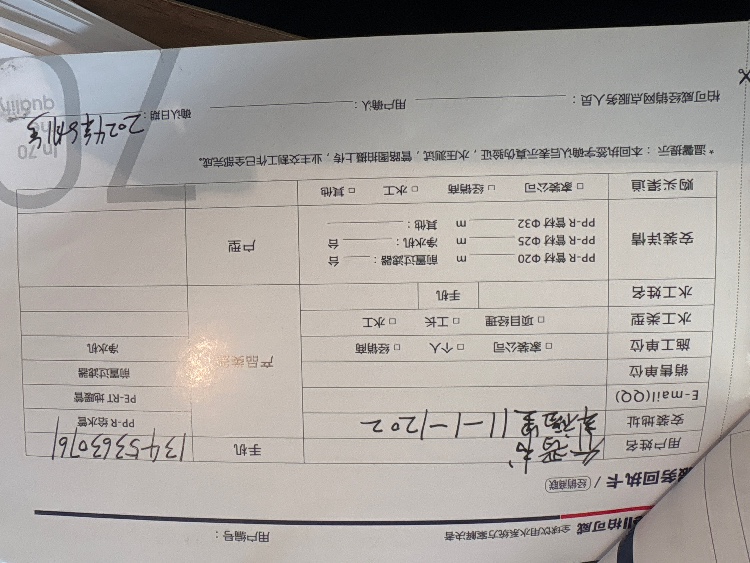 柏可威 全球饮用水系统方案解决者
用户编号：
服务回执卡 / 经销商联
用户姓名
手机 13453630761
安装地址 11-1-1202
PP-R 给水管
E-mail(QQ)
PE-RT 地暖管
销售单位
前置过滤器
施工单位 □ 家装公司 □ 个人 □ 经销商
产品类型
净水机
水工类型 □ 项目经理 □ 工长 □ 水工
水工姓名
手机
安装详情
PP-R 管材 Φ20 m 前置过滤器： 台
PP-R 管材 Φ25 m 净水机： 台
PP-R 管材 Φ32 m 其他：
户型
购买渠道 □ 家装公司 □ 经销商 □ 水工 □ 其他
* 温馨提示：本回执卡签字确认后表示真伪验证，水压测试，管路图拍摄上传，业主交割工作已全部完成。
柏可威经销网点服务人员：
用户确认：
确认日期：2024年6月1号
In 70
quality